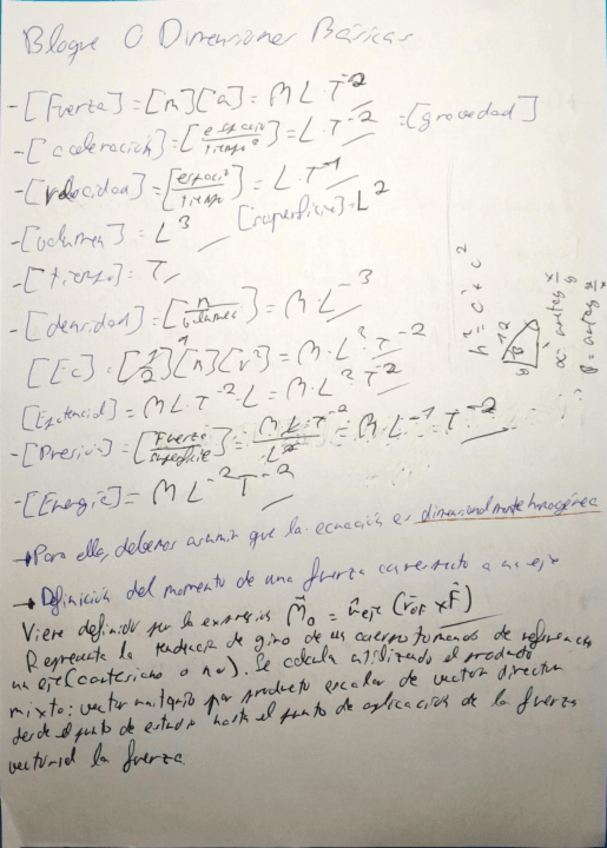 Bloque 0 Dimensiones Básicas
- [Fuerza] = [m][a] = M L · T^-2
- [aceleración] = [espacio/tiempo^2] = L · T^-2 = [gravedad]
- [velocidad] = [espacio/tiempo] = L · T^-1
- [volumen] = L^3 [superficie] = L^2
- [tiempo] = T
- [densidad] = [m/volumen] = M · L^-3
[Ec] = [1/2][m][v^2] = M · L^2 · T^-2
[Epotencial] = M L · T^-2 · L = M · L^2 · T^-2
- [Presión] = [Fuerza/superficie] = M · L · T^-2/L^2 = M L^-1 T^-2
- [Energía] = M L^-2 T^-2
h^2 = c^2 + c^2
α = arctag x/y
β = arctag y/x
→ Para ello, debemos asumir que la ecuación es dimensionalmente homogénea
→ Definición del momento de una fuerza con respecto a un eje
Viene definido por la expresión M_0 = u_eje (r_OF x F)
Representa la tendencia de giro de un cuerpo tomando de referencia
un eje (cartesiano o no). Se calcula utilizando el producto
mixto: vector unitario por producto escalar de vector director
desde el punto de estudio hasta el punto de aplicación de la fuerza
vectorial la fuerza.